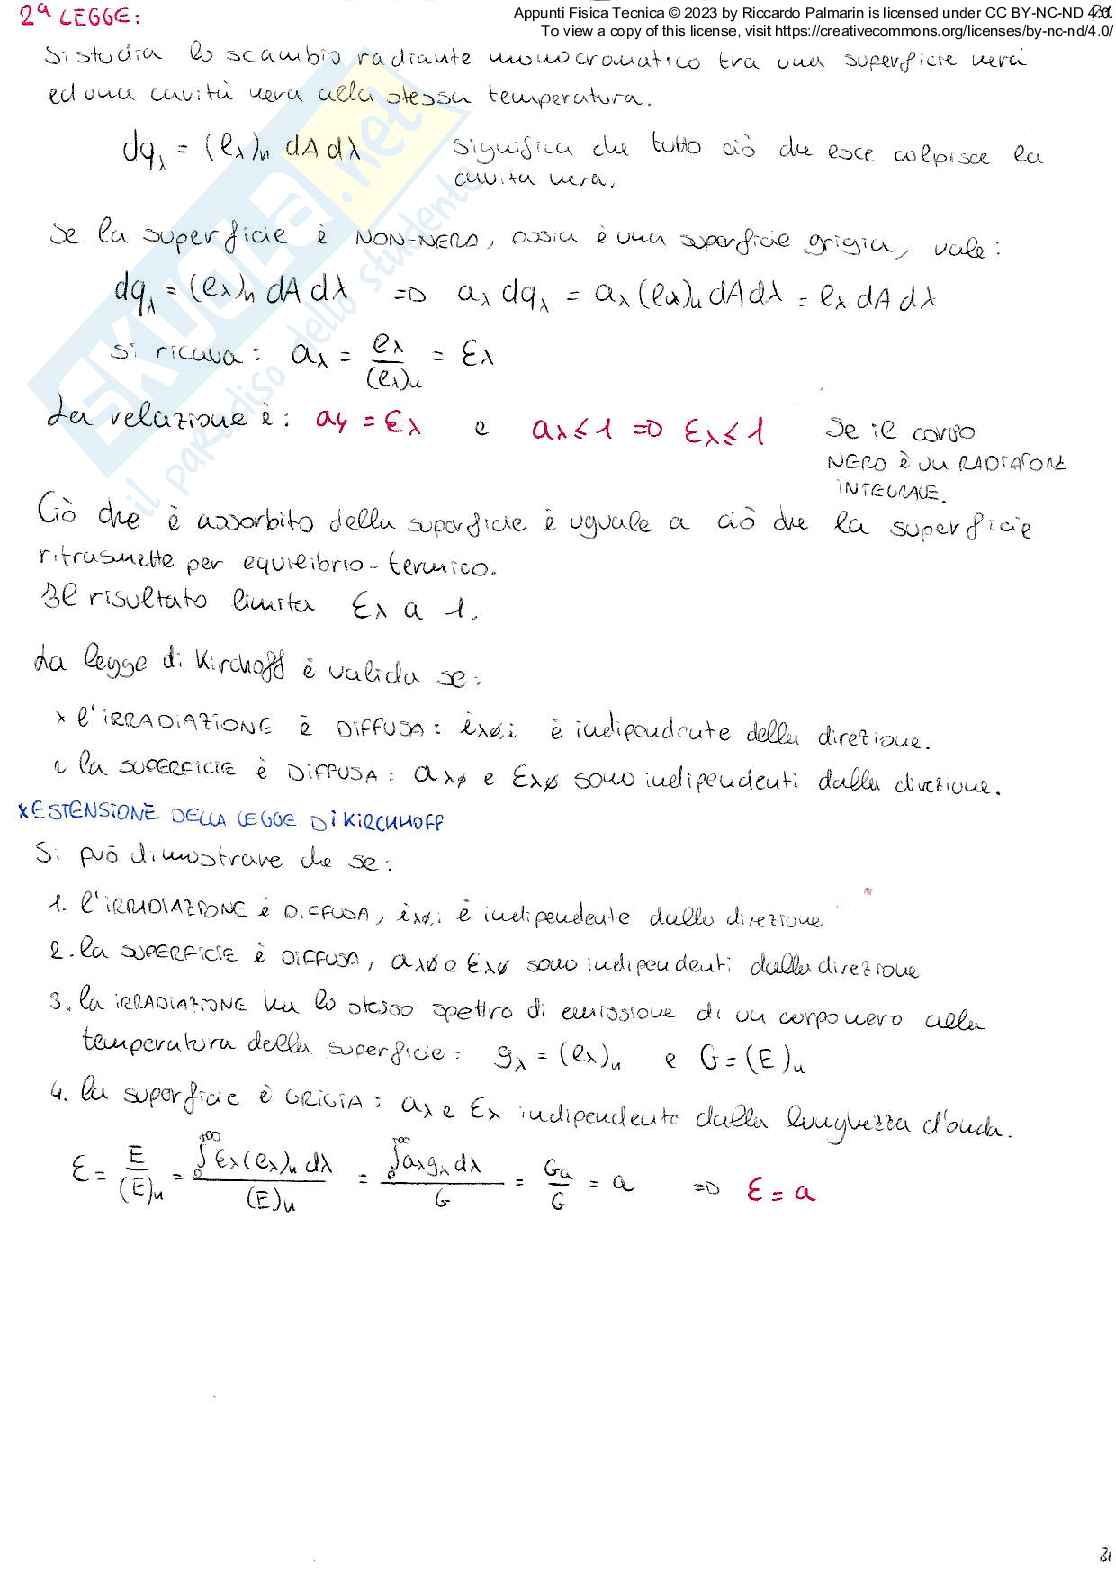 2ª LEGGE:
Appunti Fisica Tecnica © 2023 by Riccardo Palmarin is licensed under CC BY-NC-ND 4.0.
To view a copy of this license, visit https://creativecommons.org/licenses/by-nc-nd/4.0/
Si studia lo scambio radiante monocromatico tra una superficie nera
ed una cavità nera alla stessa temperatura.
dqλ = (eλ)n dA dλ significa che tutto ciò che esce colpisce la
cavità nera.
Se la superficie è NON-NERA, ossia è una superficie grigia, vale:
dqλ = (eλ)n dA dλ => aλ dqλ = aλ (eλ)n dA dλ = eλ dA dλ
si ricava: aλ = eλ/(eλ)n = ελ
La relazione è: aλ = ελ e aλ ≤ 1 => ελ ≤ 1 Se il corpo
NERO è un RADIATORE
INTEGRALE.
Ciò che è assorbito della superficie è uguale a ciò che la superficie
ritrasmette per equilibrio-termico.
Il risultato limita ελ a 1.
La legge di Kirchoff è valida se:
x l'IRRADIAZIONE è DIFFUSA: ėλø,i è indipendente della direzione.
la SUPERFICIE è DIFFUSA: aλø e ελø sono indipendenti dalla direzione.
x ESTENSIONE DELLA LEGGE DI KIRCHHOFF
Si può dimostrare che se:
1. l'IRRADIAZIONE è DIFFUSA, ėλø,i è indipendente dalla direzione
2. la SUPERFICIE è DIFFUSA, aλø o ελø sono indipendenti dalla direzione
3. la IRRADIAZIONE ha lo stesso spettro di emissione di un corpo nero alla
temperatura della superficie: gλ = (eλ)n e G = (E)n
4. la superficie è GRIGIA: aλ e ελ indipendente dalla lunghezza d'onda.
ε = E/(E)n = ∫0^+∞ ελ(eλ)n dλ/(E)n = ∫0^+∞ aλ gλ dλ/G = Ga/G = a => ε = a
skuola.net
il paradiso dello studente